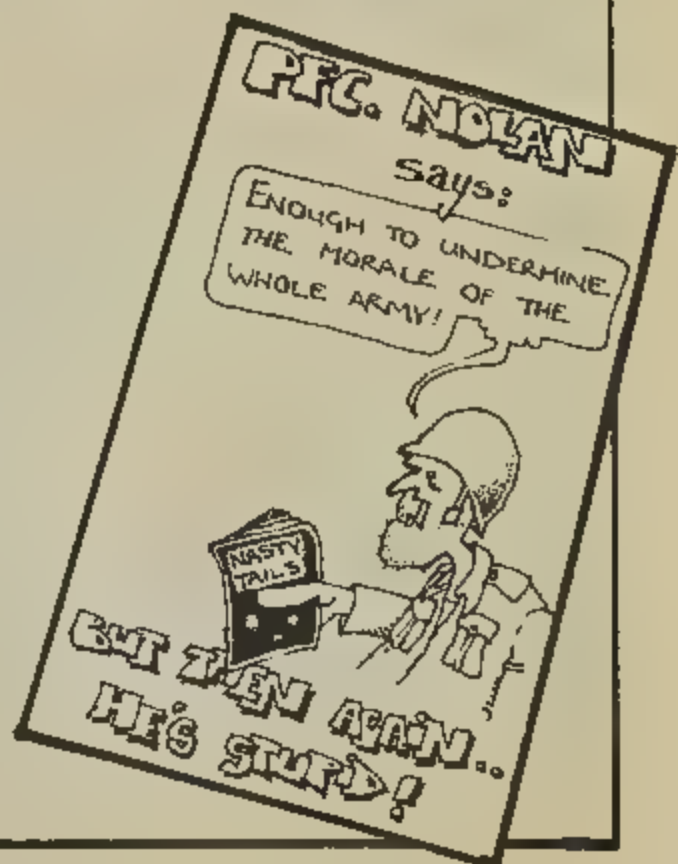 PFC. NOLAN
says:
ENOUGH TO UNDERMINE
THE MORALE OF THE
WHOLE ARMY!
NASTY
TAILS
BUT THEN AGAIN..
HE'S STUPID!